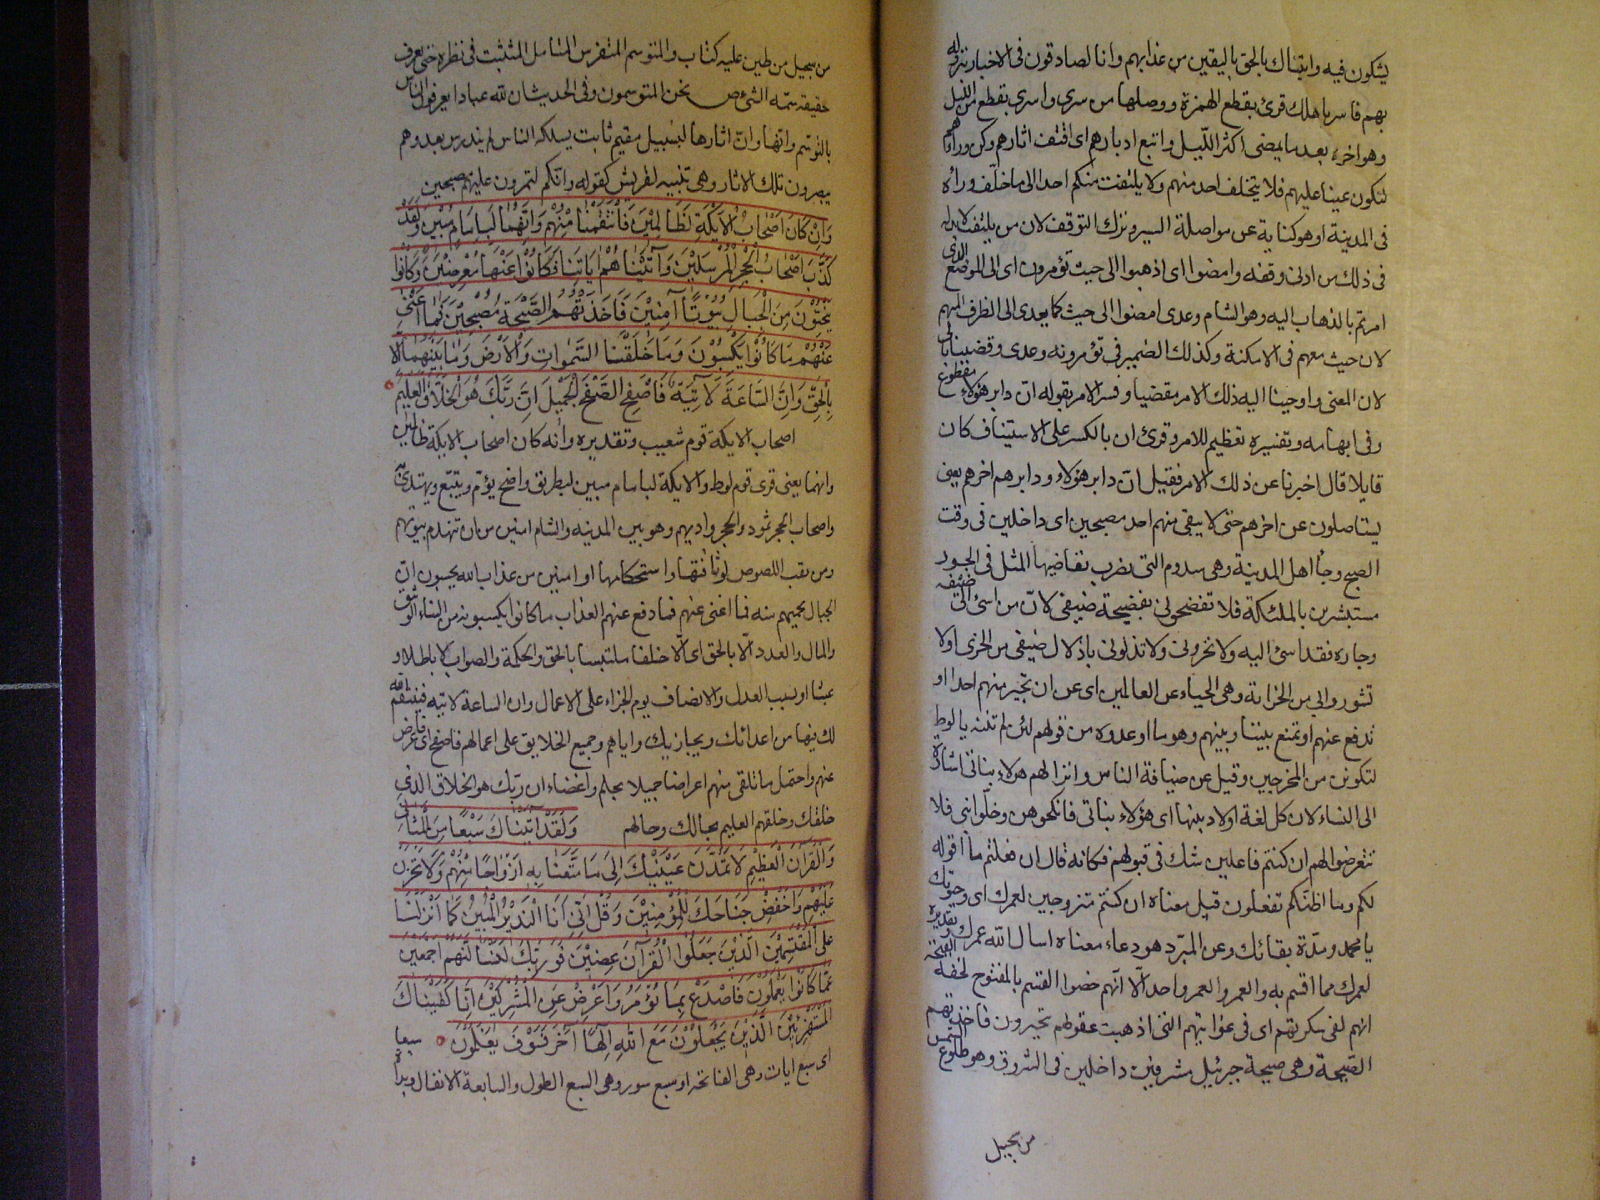 يشكون فيه واتيناك بالحق باليقين من عذابهم وانا لصادقون في الاخبار بنزوله
بهم فاسر باهلك قرئ بقطع الهمزة ووصلها من سرى واسرى بقطع من الليل
وهو اخره بعد ما يمضى اكثر الليل واتبع ادبارهم اى اقتف اثارهم وكن وراءهم
لتكون عينا عليهم فلا يتخلف احد منهم ولا يلتفت منكم احد الى ما خلف وراه
فى المدينة او هو كناية عن مواصلة السير وترك التوقف لان من يلتفت لابد له
فى ذلك من ادنى وقفة وامضوا اى اذهبوا الى حيث تؤمرون اى الى الموضع الذى
امرتم بالذهاب اليه وهو الشام وعدى امضوا الى حيث كما يعدى الى الظرف المبهم
لان حيث مبهم فى الامكنة وكذلك الضمير فى تؤمرونه وعدى وقضينا بالى
لان المعنى واوحينا اليه ذلك الامر مقضيا وفسر الامر بقوله ان دابر هؤلاء مقطوع
وفى ابهامه وتفسيره تعظيم للامر وقرئ ان بالكسر على الاستيناف كان
قايلا قال اخبرنا عن ذلك الامر فقيل ان دابر هؤلاء ودابرهم اخرهم يعنى
يستاصلون عن اخرهم حتى لا يبقى منهم احد مصبحين اى داخلين فى وقت
الصبح وجاء اهل المدينة وهى سدوم التى يضرب بقاضيها المثل فى الجور
مستبشرين بالملئكة فلا تفضحون بفضيحة ضيفى لان من اسئ الى ضيفه
وجاره فقد اسئ اليه ولا تخزون ولا تذلونى باذلال ضيفى من الخزى او لا
تشوروا بى من الخزاية وهى الحياء عن العالمين اى عن ان تجير منهم احدا او
تدفع عنهم او تمنع بيننا وبينهم وهو ما اوعدوه من قولهم لئن لم تنته يا لوط
لتكونن من المخرجين وقيل عن ضيافة الناس وانزالهم هؤلاء بناتى اشارة
الى النساء لان كل امة اولاد نبيها اى هؤلاء بناتى فانكحوهن وخلوا بنى فلا
تتعرضوا لهم ان كنتم فاعلين شك فى قبولهم فكانه قال ان فعلتم ما اقوله
لكم وما اظنكم تفعلون قيل معناه ان كنتم متزوجين لعمرك اى وحيوتك
يا محمد ومدة بقائك وعن المبرد هو دعاء معناه اسال الله عمرك وتقديره
لعمرك مما اقسم به والعمر والعمر واحد الا انهم خصوا القسم بالمفتوح لخفة الفتحة
انهم لفى سكرتهم اى فى غوايتهم التى اذهبت عقولهم تحيرون فاخذتهم
الصيحة وهى صيحة جبرئيل مشرقين داخلين فى الشروق وهو طلوع الشمس
من سجيل
من سجيل من طين عليه كتاب والمتوسم المتفرس المتامل المتثبت فى نظره حتى يعرف
حقيقة سمة الشئ ص نحن المتوسمون وفى الحديث ان لله عبادا يعرفون الناس
بالتوسم وانها وان اثارها لبسبيل مقيم ثابت يسلكه الناس لم يندرس بعد وهم
يبصرون تلك الاثار وهى تنبيه لقريش كقوله وانكم لتمرون عليهم مصبحين
وَاِنْ كَانَ اَصْحَابُ الْاَيْكَةِ لَظَالِمِيْنَ فَانْتَقَمْنَا مِنْهُمْ وَاِنَّهُمَا لَبِاِمَامٍ مُبِيْنٍ وَلَقَدْ
كَذَّبَ اَصْحَابُ الْحِجْرِ الْمُرْسَلِيْنَ وَآتَيْنَاهُمْ آيَاتِنَا فَكَانُوْا عَنْهَا مُعْرِضِيْنَ وَكَانُوا
يَنْحِتُوْنَ مِنَ الْجِبَالِ بُيُوْتًا آمِنِيْنَ فَاَخَذَتْهُمُ الصَّيْحَةُ مُصْبِحِيْنَ فَمَا اَغْنٰى
عَنْهُمْ مَا كَانُوْا يَكْسِبُوْنَ وَمَا خَلَقْنَا السَّمٰوَاتِ وَالْاَرْضَ وَمَا بَيْنَهُمَا اِلَّا
بِالْحَقِّ وَاِنَّ السَّاعَةَ لَآتِيَةٌ فَاصْفَحِ الصَّفْحَ الْجَمِيْلَ اِنَّ رَبَّكَ هُوَ الْخَلَّاقُ الْعَلِيْمُ
اصحاب الايكة قوم شعيب وتقديره وانه كان اصحاب الايكة ظالمين
وانهما يعنى قرى قوم لوط والايكة لبامام مبين لبطريق واضح يؤم ويتبع ويهتدى به
واصحاب الحجر ثمود والحجر واديهم وهو بين المدينة والشام امنين من ان تنهدم بيوتهم
ومن نقب اللصوص لوثاقتها واستحكامها او امنين من عذاب الله يحسبون ان
الجبال تحميهم منه فما اغنى عنهم فما دفع عنهم العذاب ما كانوا يكسبونه من البناء الوثيق
والمال والعدد الا بالحق اى الا خلقا ملتبسا بالحق والحكمة والصواب لا باطلا و
عبثا او بسبب العدل والانصاف يوم الجزاء على الاعمال وان الساعة لاتيه فينتقم الله
لك فيها من اعدائك ويجازيك واياهم وجميع الخلايق على اعمالهم فاصفح اى فاعرض
عنهم واحتمل ما تلقى منهم اعراضا جميلا بحلم واغضاء ان ربك هو الخلاق الذى
خلقك وخلقهم العليم بحالك وحالهم وَلَقَدْ آتَيْنَاكَ سَبْعًا مِنَ الْمَثَانِى
وَالْقُرْآنَ الْعَظِيْمَ لَا تَمُدَّنَّ عَيْنَيْكَ اِلٰى مَا مَتَّعْنَا بِهِ اَزْوَاجًا مِنْهُمْ وَلَا تَحْزَنْ
عَلَيْهِمْ وَاخْفِضْ جَنَاحَكَ لِلْمُؤْمِنِيْنَ وَقُلْ اِنِّى اَنَا النَّذِيْرُ الْمُبِيْنُ كَمَا اَنْزَلْنَا
عَلَى الْمُقْتَسِمِيْنَ الَّذِيْنَ جَعَلُوا الْقُرْآنَ عِضِيْنَ فَوَرَبِّكَ لَنَسْئَلَنَّهُمْ اَجْمَعِيْنَ
عَمَّا كَانُوْا يَعْمَلُوْنَ فَاصْدَعْ بِمَا تُؤْمَرُ وَاَعْرِضْ عَنِ الْمُشْرِكِيْنَ اِنَّا كَفَيْنَاكَ
الْمُسْتَهْزِئِيْنَ الَّذِيْنَ يَجْعَلُوْنَ مَعَ اللّٰهِ اِلٰهًا آخَرَ فَسَوْفَ يَعْلَمُوْنَ سبعا
اى سبع ايات وهى الفاتحه او سبع سور وهى السبع الطول والسابعة الانفال وبراة